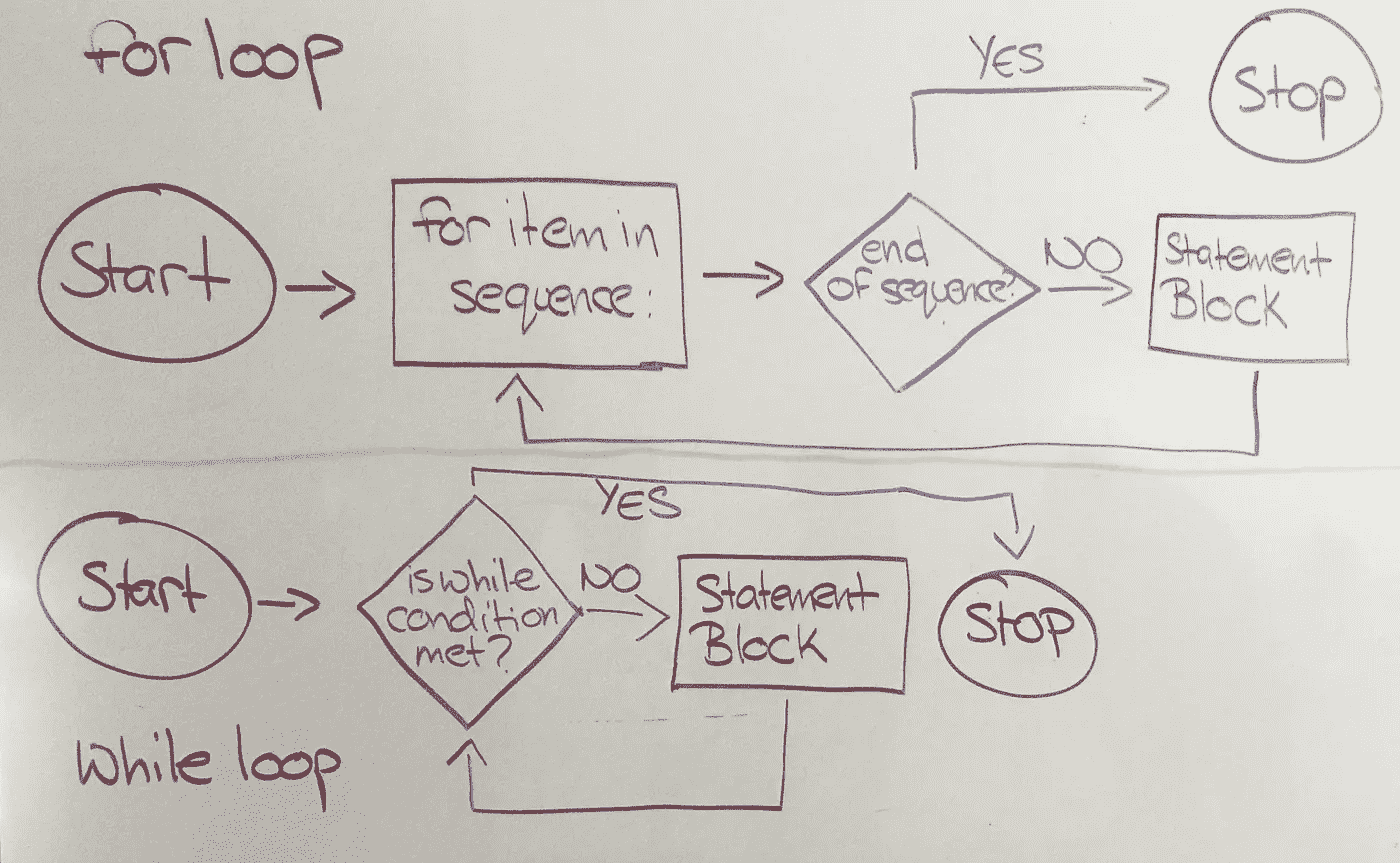 for loop
YES
Stop
Start
for item in
sequence:
end
of sequence?
NO
Statement
Block
YES
Start
is while
condition
met?
NO
Statement
Block
Stop
while loop